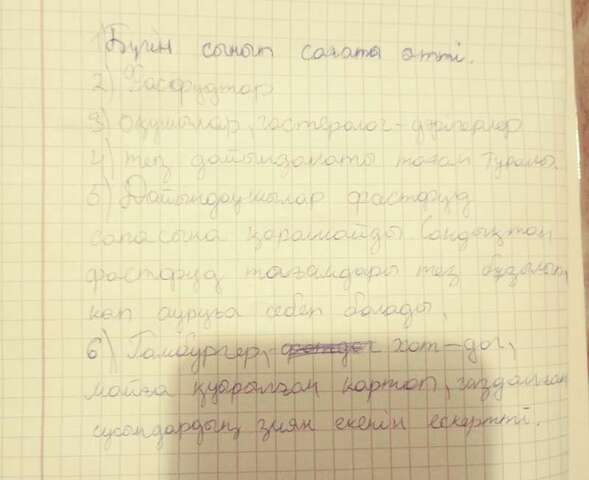 1) Бүгін сынып сағаты өтті.
2) Фастфудтар
3) оқушылар, гастеролог-дәрігерлер
4) тез дайындалаты тағам туралы.
5) Дайындаушылар фастфуд
сапасына қарамайды. Сондықтан
фастфуд тағамдары тез бұзылып,
көп ауруға себеп болады.
6) Гамбургер, хот-дог,
майға қуырылған картоп, газдалған
сусындардың зиян екенін ескертті.